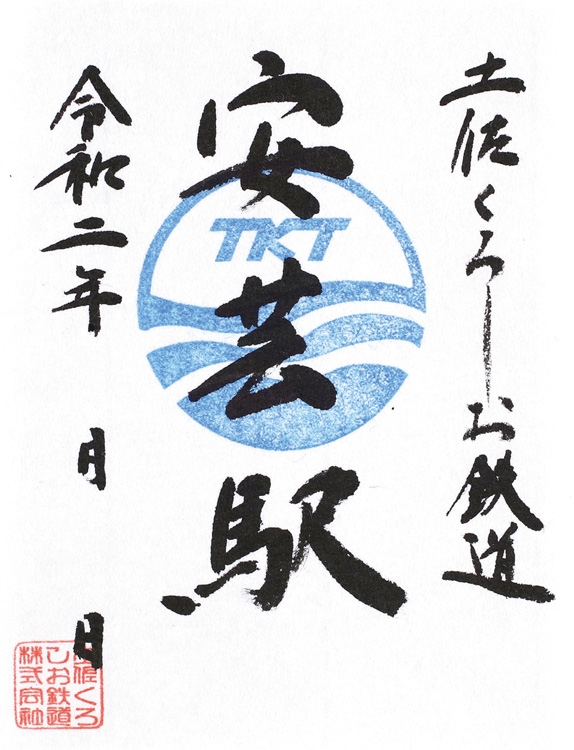 土佐くろしお鉄道
安芸駅
TKT
令和二年 月 日
土佐くろ
しお鉄道
株式会社